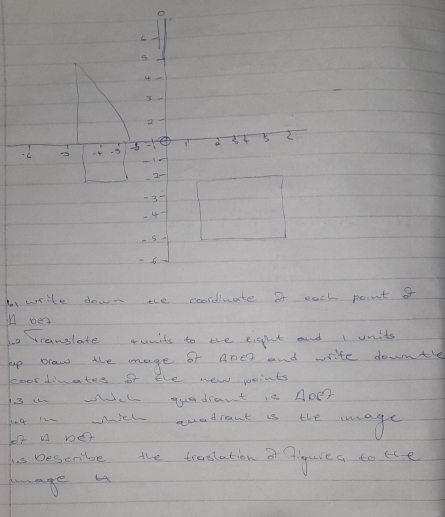 0
6
5
4
3
2
1
-6 -5 -4 -3 -2 -1 1 2 3 4 5 6
-1
-2
-3
-4
-5
-6
1.1 write down the coordinate of each point of
Δ DEF
1.2 Translate 4 units to the right and 1 units
up Draw the image of ΔDEF and write down the
coordinates of the new points
1.3 in which quadrant is ΔDEF
1.4 in which quadrant is the image
of Δ DEF
1.5 Describe the traslation of figure to the
image